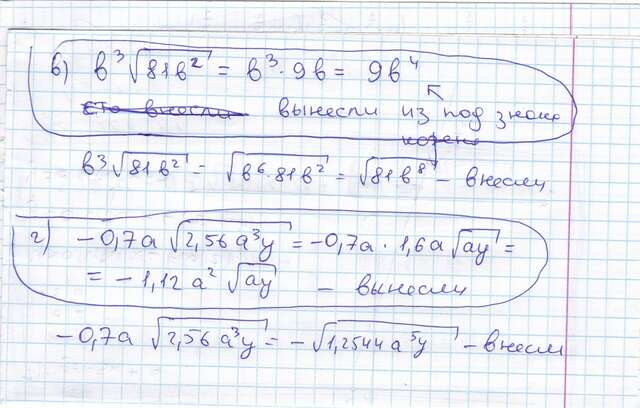 в) в³√81в² = в³·9в = 9в⁴
это внесли вынесли из под знака
корень
в³√81в² = √в⁶·81в² = √81в⁸ - внесли
г) -0,7а √2,56а³у = -0,7а · 1,6а √ау =
= -1,12а² √ау - вынесли
-0,7а √2,56а³у = -√1,2544а⁵у - внесли